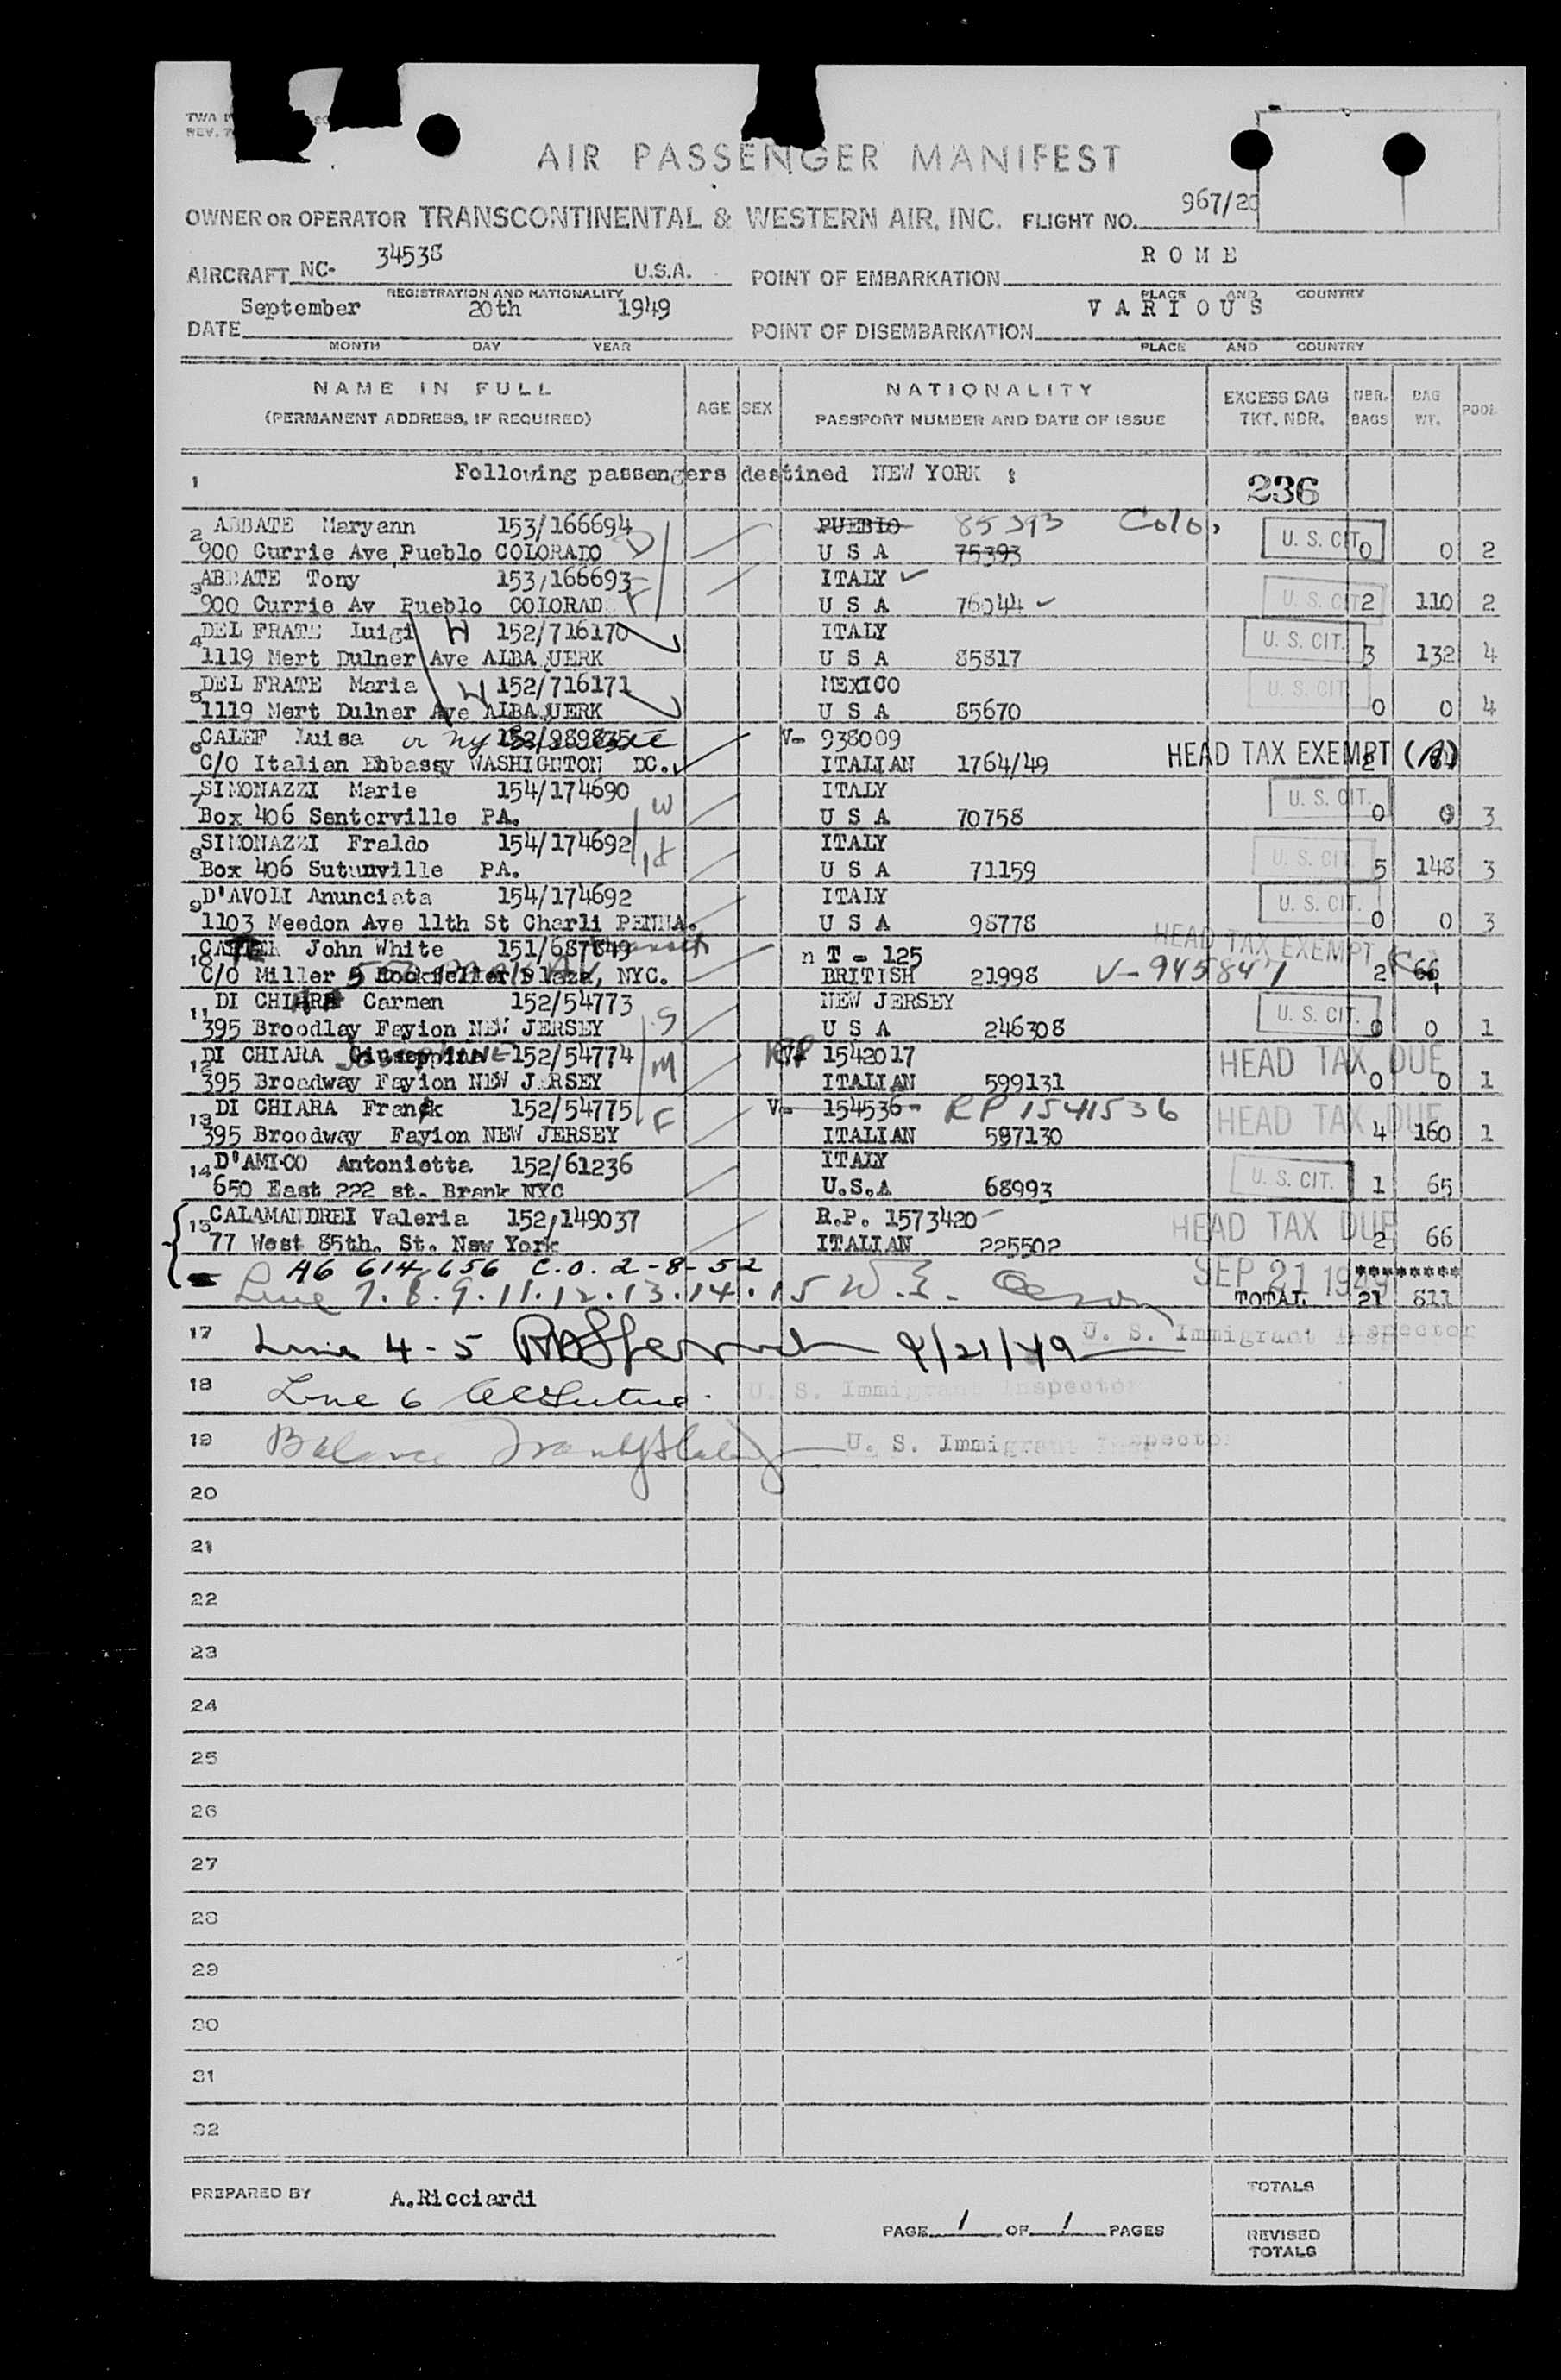 TWA
REV. 7
AIR PASSENGER MANIFEST
OWNER OR OPERATOR TRANSCONTINENTAL & WESTERN AIR, INC. FLIGHT NO. 967/20
AIRCRAFT NC- 34538 U.S.A. POINT OF EMBARKATION ROME
REGISTRATION AND NATIONALITY PLACE AND COUNTRY
DATE September 20th 1949 POINT OF DISEMBARKATION VARIOUS
MONTH DAY YEAR PLACE AND COUNTRY
NAME IN FULL AGE SEX NATIONALITY EXCESS BAG NBR. BAG POOL
(PERMANENT ADDRESS, IF REQUIRED) PASSPORT NUMBER AND DATE OF ISSUE TKT. NBR. BAGS WT.
1 Following passengers destined NEW YORK : 236
2 ABBATE Maryann 153/166694 D PUEBLO 85393 Colo, U. S. CIT.
900 Currie Ave Pueblo COLORADO U S A 75393 0 0 2
3 ABBATE Tony 153/166693 F ITALY
900 Currie Av Pueblo COLORAD U S A 76044 U. S. CIT. 2 110 2
4 DEL FRATE Luigi H 152/716170 ITALY U. S. CIT.
1119 Mert Dulner Ave ALBA UERK U S A 85817 3 132 4
5 DEL FRATE Maria W 152/716171 MEXICO U. S. CIT.
1119 Mert Dulner Ave ALBA UERK U S A 85670 0 0 4
6 CALEF Luisa 152/989835 V- 938009
C/O Italian Ebbassy WASHIGNTON DC. ITALIAN 1764/49 HEAD TAX EXEMPT 2
7 SIMONAZZI Marie 154/174690 W ITALY U. S. CIT.
Box 406 Senterville PA. U S A 70758 0 0 3
8 SIMONAZZI Fraldo 154/174692 H ITALY U. S. CIT.
Box 406 Sutunville PA. U S A 71159 5 148 3
9 D'AVOLI Anunciata 154/174692 ITALY U. S. CIT.
1103 Meedon Ave 11th St Charli PENNA. U S A 98778 0 0 3
10 John White 151/687849 n T - 125 HEAD TAX EXEMPT
C/O Miller 5 Rockfeller Plaza, NYC. BRITISH 21998 V-945847 2 66
11 DI CHIARA Carmen 152/54773 S NEW JERSEY U. S. CIT.
395 Broodlay Fayion NEW JERSEY U S A 246308 0 0 1
12 DI CHIARA Giuseppina JOSEPHINE 152/54774 M RP 1542017 HEAD TAX DUE
395 Broadway Fayion NEW JERSEY ITALIAN 599131 0 0 1
13 DI CHIARA Frank 152/54775 F V- 154536- RP 1541536 HEAD TAX DUE
395 Broodway Fayion NEW JERSEY ITALIAN 587130 4 160 1
14 D'AMICO Antonietta 152/61236 ITALY U. S. CIT.
650 East 222 st. Brank NYC U.S.A 68993 1 65
15 CALAMANDREI Valeria 152/149037 R.P. 1573420 HEAD TAX DUE
77 West 85th. St. New York ITALIAN 225502 2 66
A6 614 656 C.O. 2-8-52 SEP 21 1949 *********
Line 7.8.9.11.12.13.14.15 W.E. TOTAL 21 811
17 Line 4-5 9/21/49 U. S. Immigrant Inspector
18 Line 6 U. S. Immigrant Inspector
19 Balance U. S. Immigrant Inspector
20
21
22
23
24
25
26
27
28
29
30
31
32
PREPARED BY A.Ricciardi TOTALS
PAGE 1 OF 1 PAGES REVISED
TOTALS